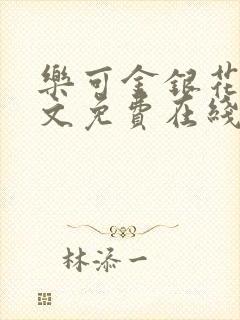 樂可金銀花
文免費在綫
林添一